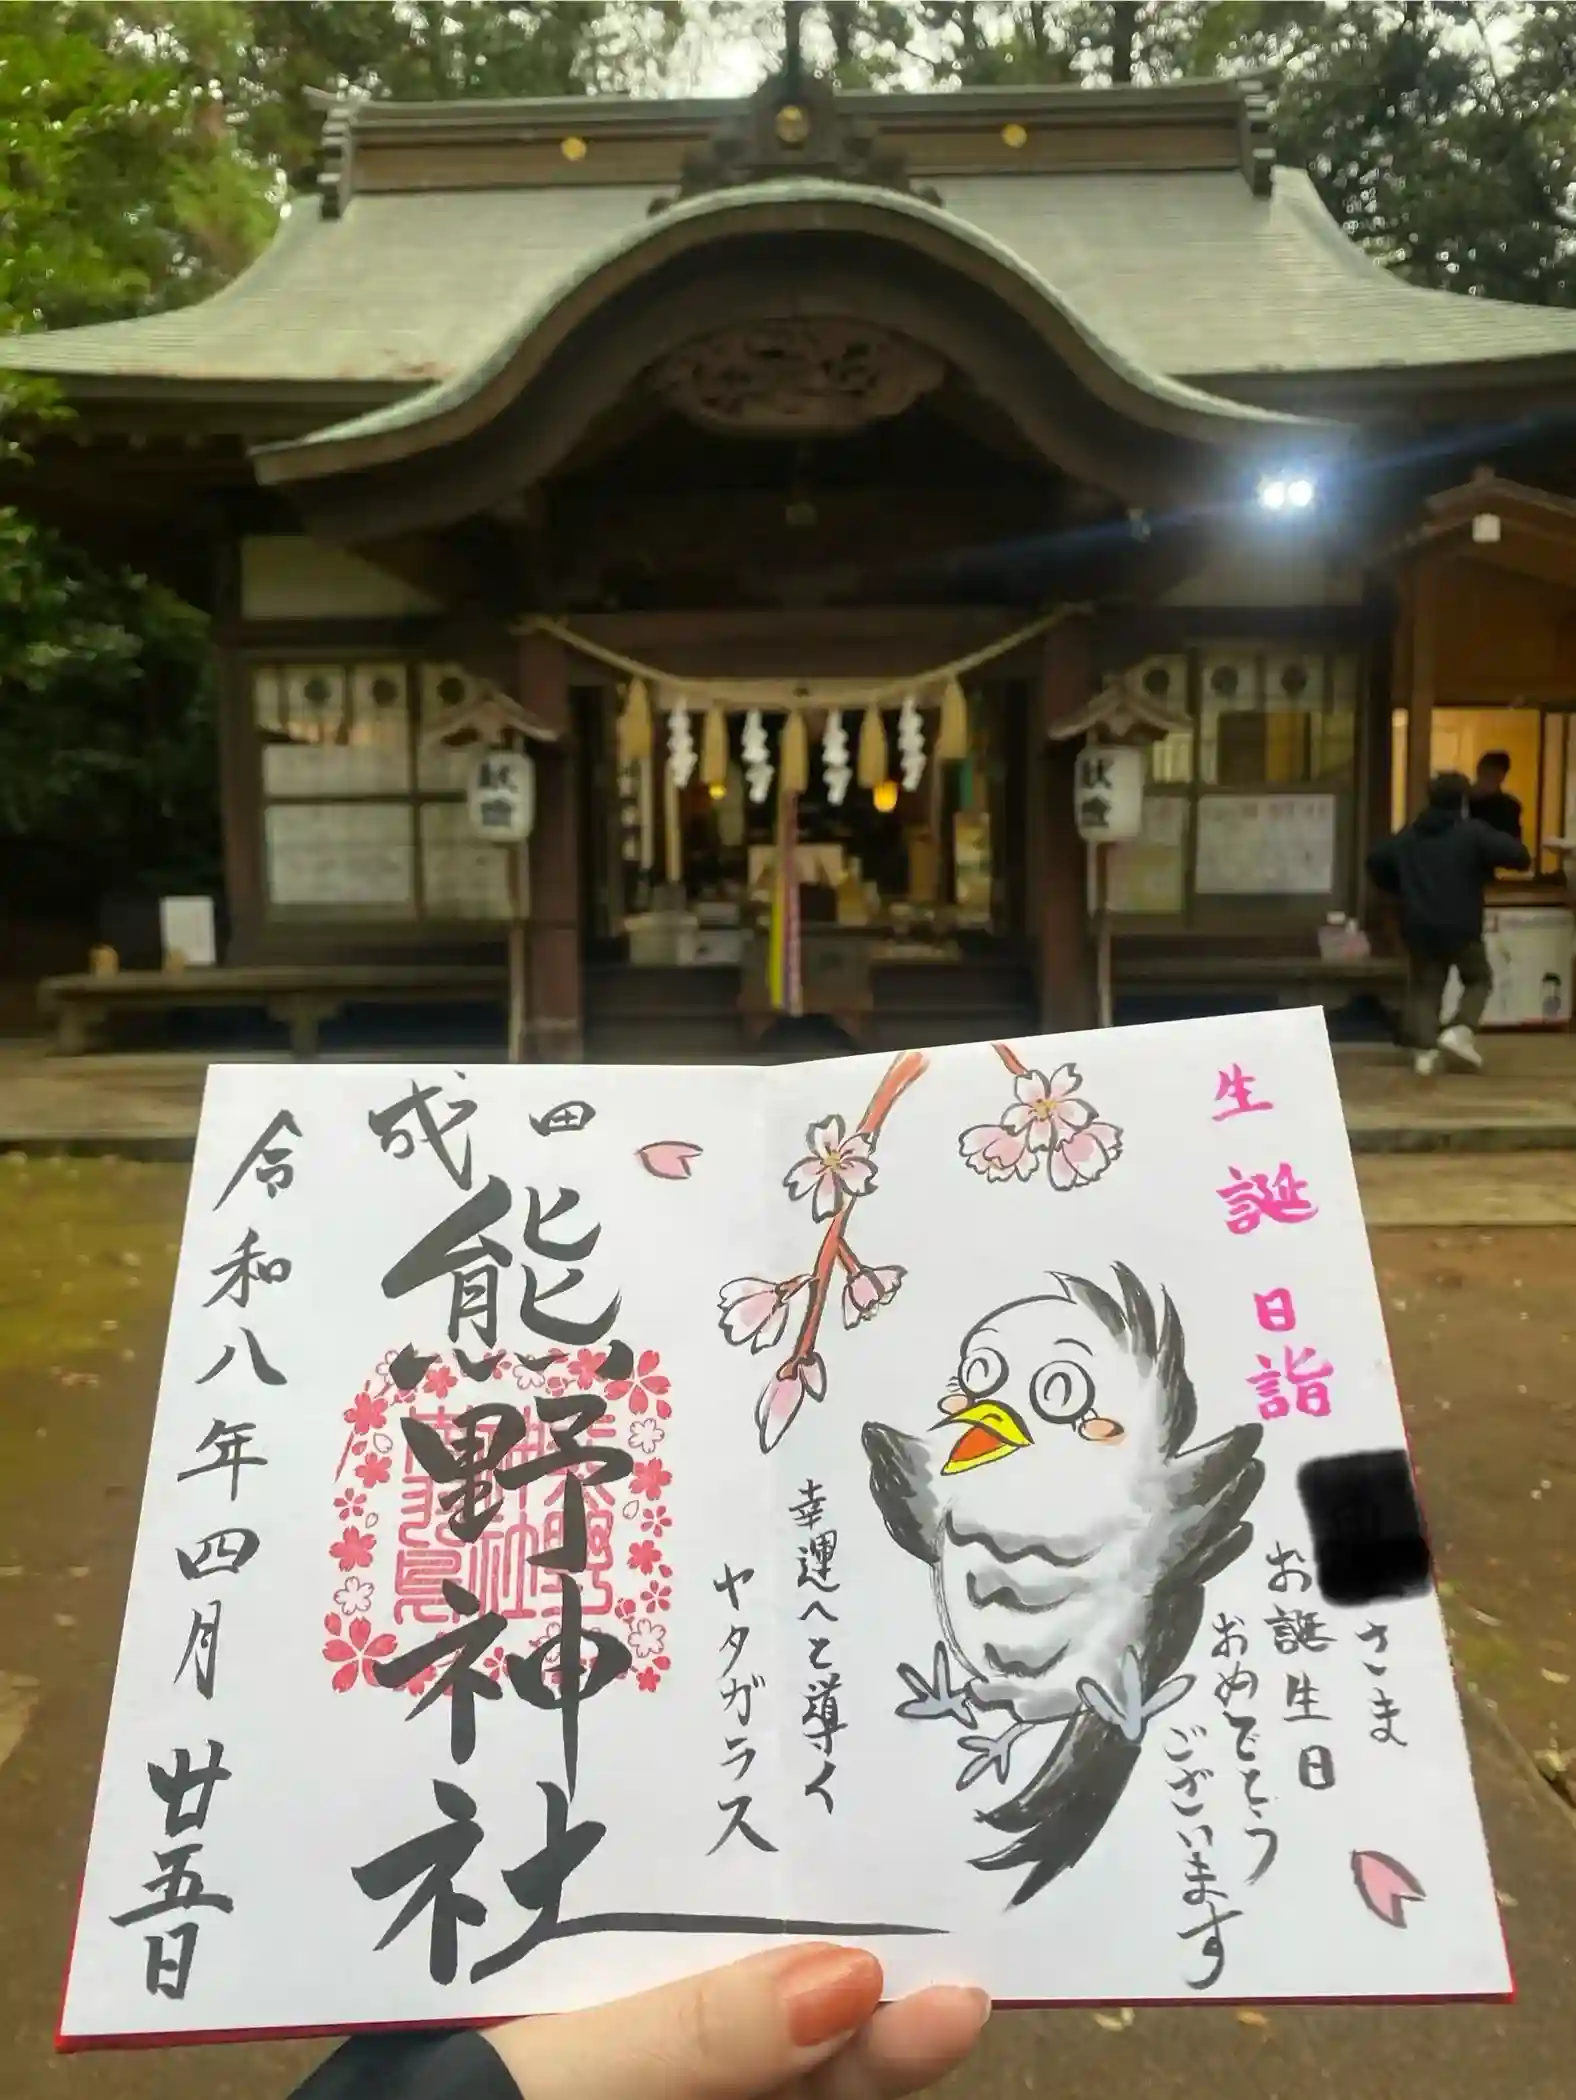 献燈
献燈
生誕日詣
さま
お誕生日
おめでとう
ございます
幸運へと導く
ヤタガラス
成田
熊野神社
熊野
神社
南羽鳥
令和八年四月廿五日